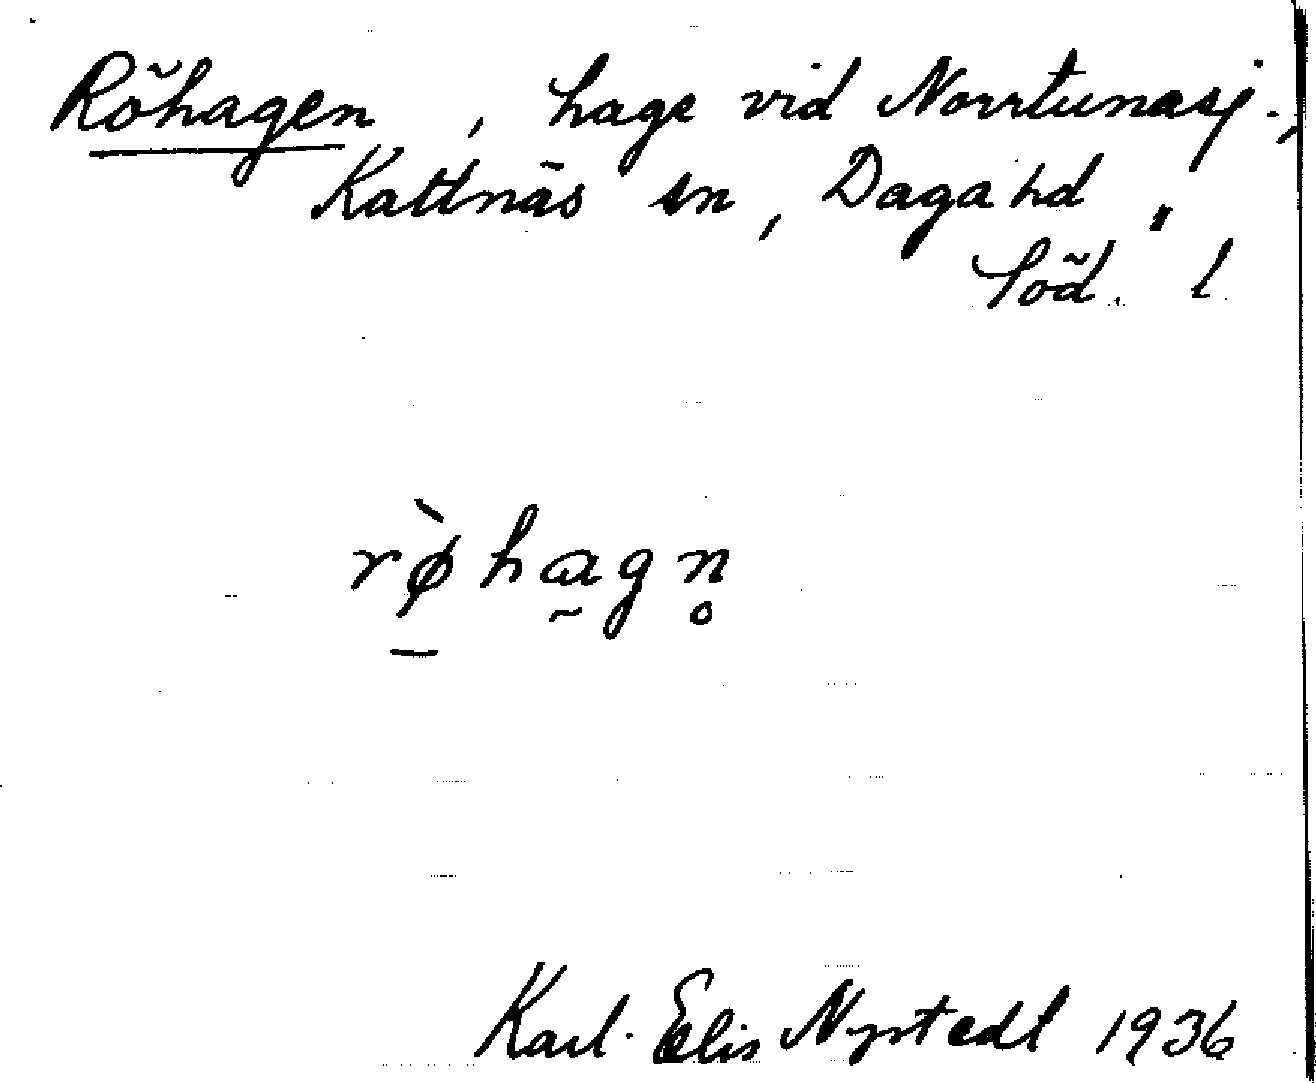 Röhagen, hage vid Norrtunasj.,
Kattnäs sn, Daga hd,
Söd. l
rø̀hagn̥
Karl-Elis Nystedt 1936